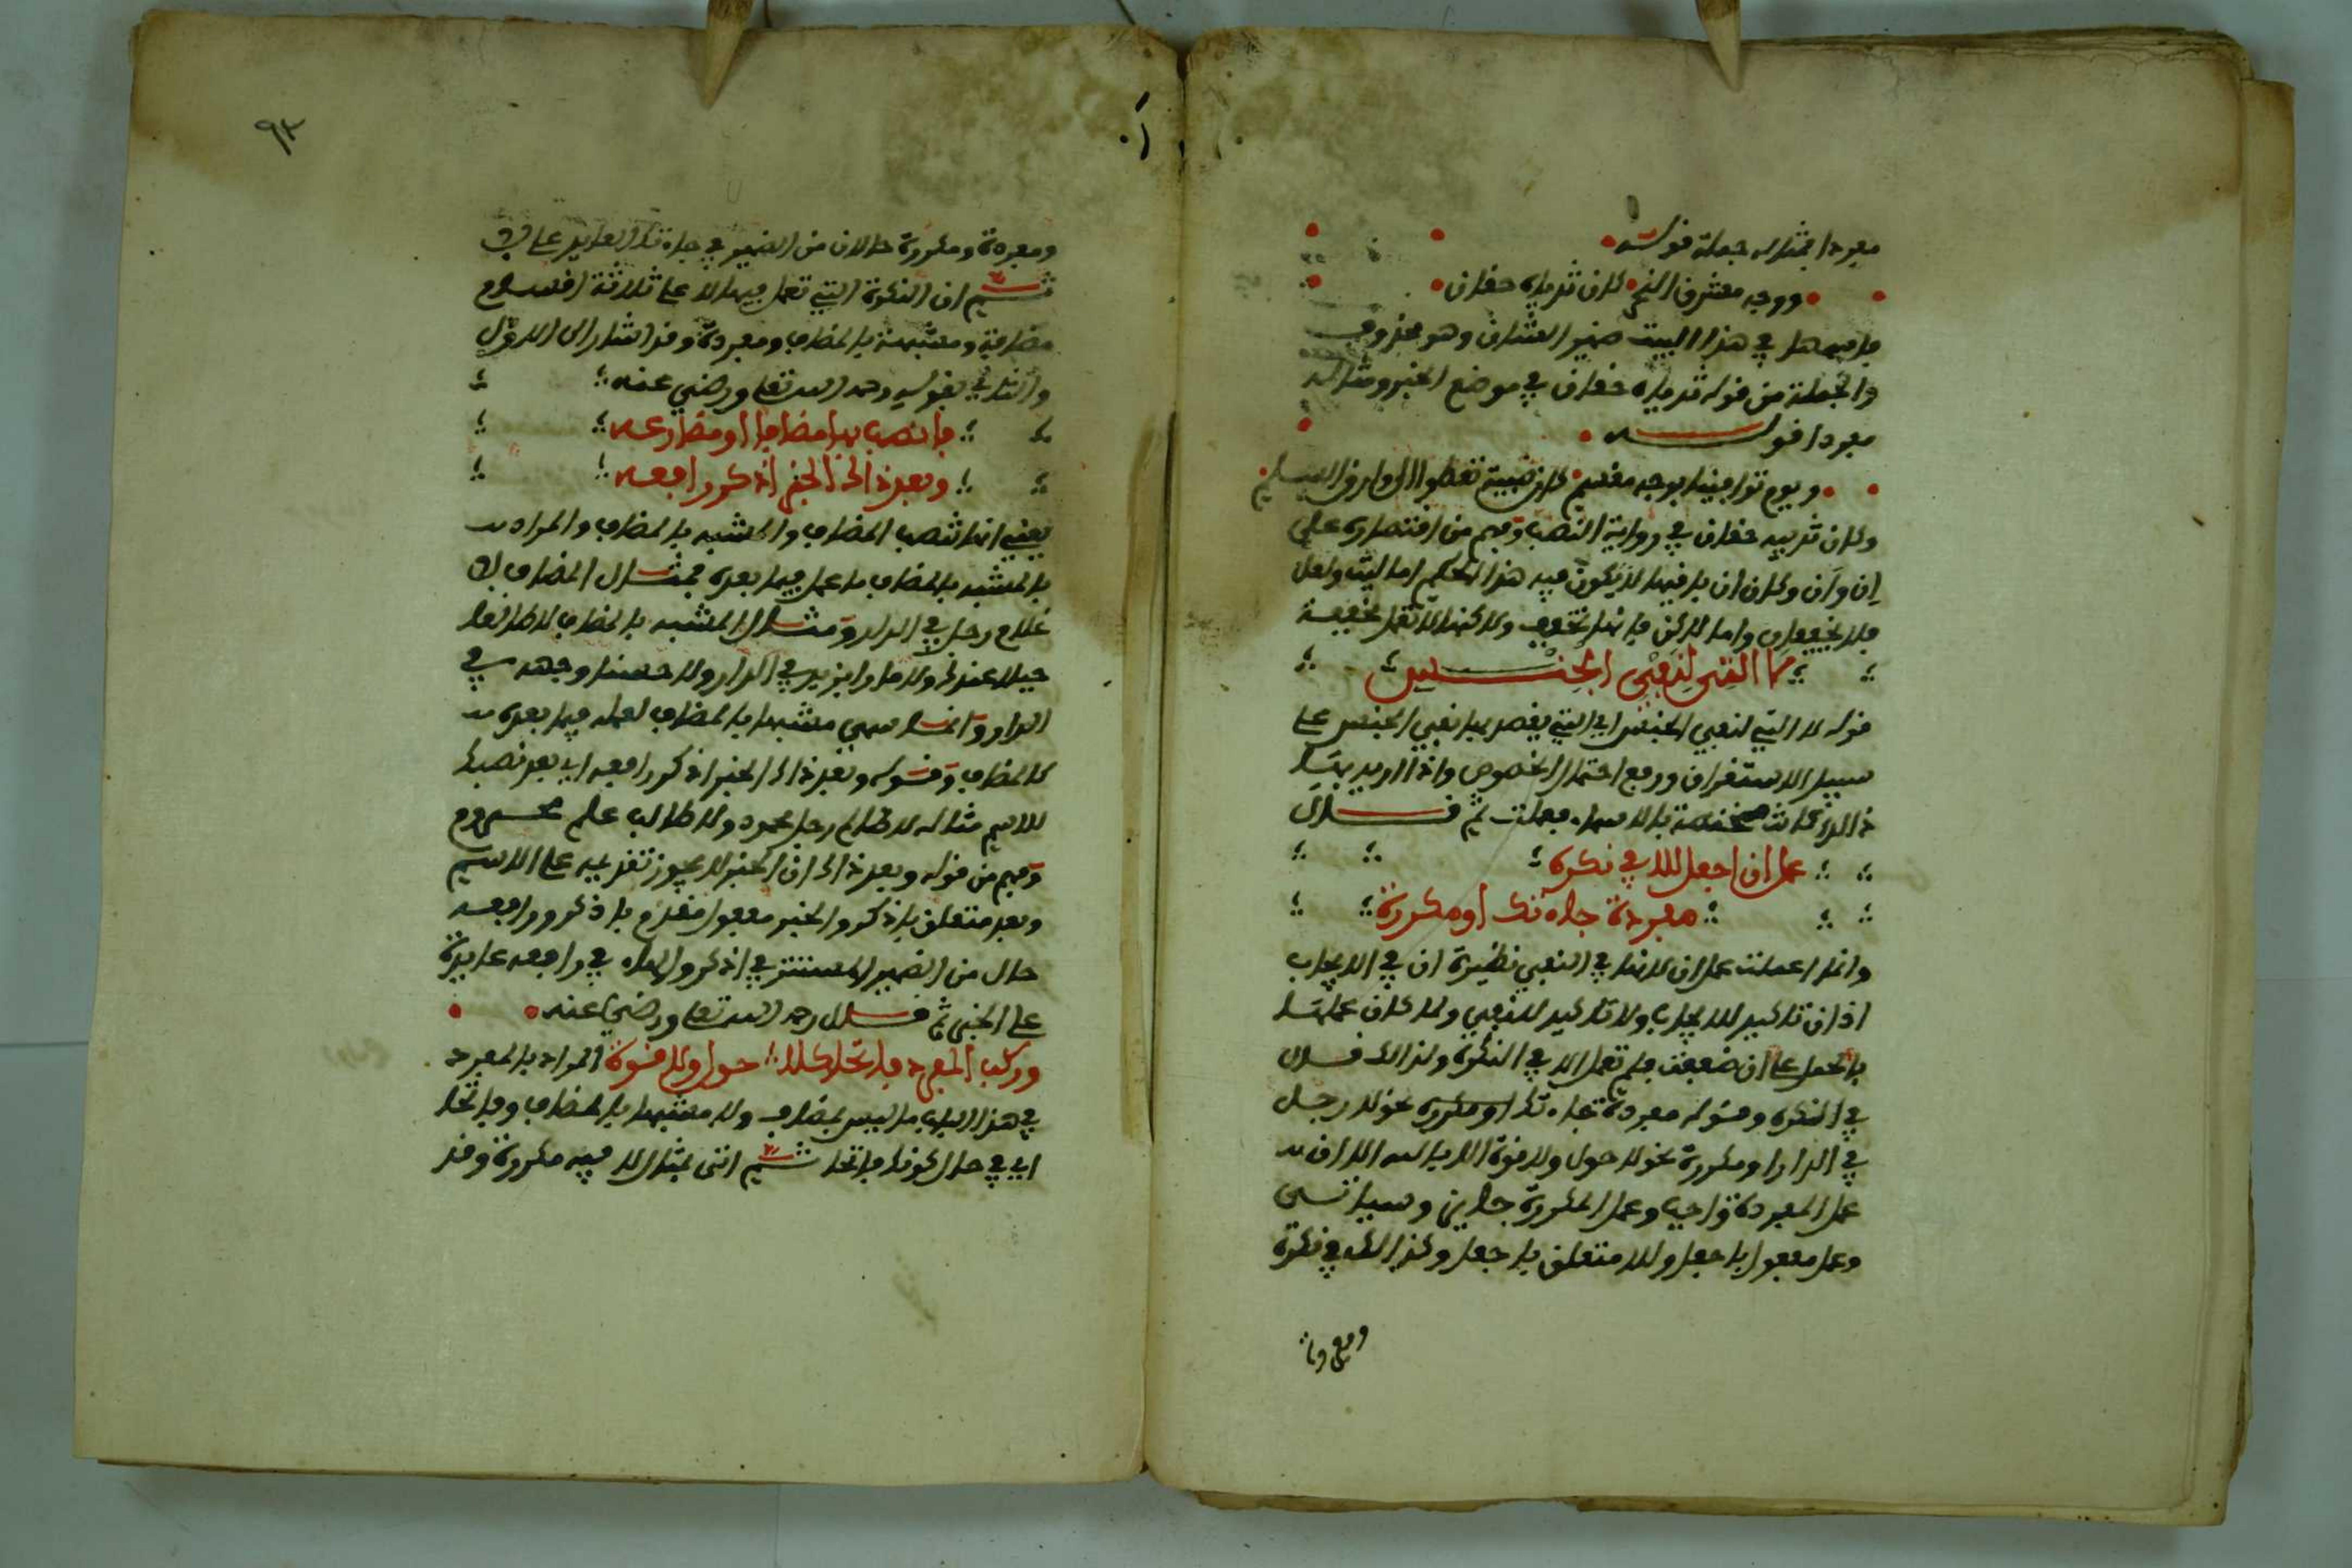 مفردا فمثاله جملة قوله
ووجه مشرق النحر كان ثدياه حقان
فاسمها في هذا البيت ضمير الشان وهو محذوف
والجملة من قوله ثدياه حقان في موضع الخبر ومثاله
مفردا قوله
ويوم توافينا بوجه مقسم كان ظبية تعطوا الى وارق السلم
وكان ثدييه حقان في رواية النصب وفهم من اقتصاره على
إن وأن وكان ان باقيها لا يكون فيه هذا الحكم اما ليت ولعل
فلا يخففان واما لاكن فانها تخفف ولاكنها لا تعمل مخففة
لا التي لنفي الجنس
قوله لا التي لنفي الجنس اي التي يقصد بها نفي الجنس على
سبيل الاستغراق ورفع احتمال الخصوص واذا اريد بها
ذالك كانت مختصة بالاسماء فعملت ثم قال
عمل ان اجعل للا في نكره
مفردة جاءتك او مكررة
وانما اعملت عمل ان لانها في النفي نظيرة ان في الايجاب
اذ ان تاكيد للايجاب ولا تاكيد للنفي ولما كان عملها
بالحمل على ان ضعفت فلم تعمل الا في النكرة ولذالك قال
في النكره وقوله مفردة جاءتك او مكرره نحو لا رجل
في الدار او مكررة نحو لا حول ولا قوة الا بالله الا ان
عمل المفردة واجب وعمل المكررة جايز وسياتي
وعمل مفعول باجعل وللا متعلق باجعل وكذالك في نكرة
ومفردة
٩٢
ومفردة ومكررة حالان من الضمير في جاءتك العايد على لا
ثم ان النكرة التي تعمل فيها لا على ثلاثة اقسام
مضافة ومشبهة بالمضاف ومفردة وقد اشار الى الاول
والثاني بقوله رحمه الله تعلى ورضي عنه
فانصب بها مضافا او مضارعه
وبعد ذاك الخبر اذكر رافعه
يعني انها تنصب المضاف والمشبه بالمضاف والمراد
بالمشبه بالمضاف ما عمل فيما بعده فمثال المضاف لا
غلام رجل في الدار ومثال المشبه بالمضاف لا طالعا
جبلا عندك ولا مارا بزيد في الدار ولا حسنا وجهه في
الدار وانما سمي مشبها بالمضاف لعمله فيما بعده
كالمضاف وقوله وبعد ذاك الخبر اذكر رافعه اي بعد نصبك
للاسم مثاله لا ظالم رجل محمود ولا طالب علم محروم
وفهم من قوله وبعد ذاك ان الخبر لا يجوز تقديمه على الاسم
وبعد متعلق باذكر والخبر مفعول مقدم باذكر ورافعه
حال من الضمير المستتر في اذكر والهاء في رافعه عايدة
على الخبر ثم قال رحمه الله تعلى ورضي عنه
وركب المفرد فاتحا كلا حول ولا قوة المراد بالمفرد
في هذا الباب ما ليس بمضاف ولا مشبها بالمضاف وفاتحا
اي في حال كونك فاتحا ثم اتى بمثال لا فيه مكررة وقد